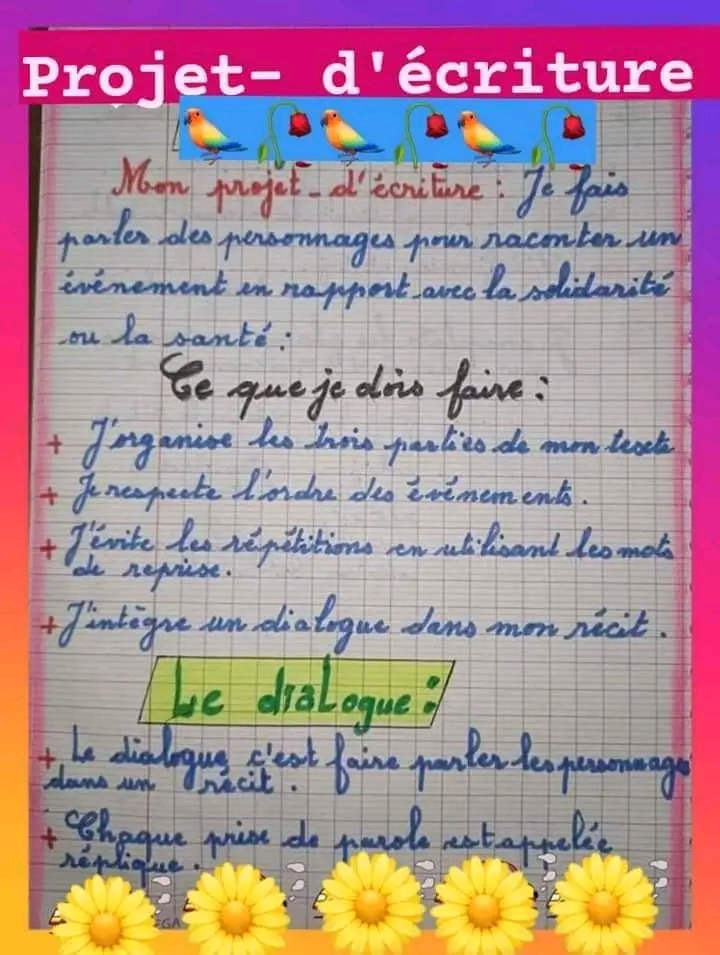 Projet- d'écriture
Mon projet-d'écriture : Je fais
parler des personnages pour raconter un
événement en rapport avec la solidarité
ou la santé :
Ce que je dois faire :
+ J'organise les trois parties de mon texte
+ Je respecte l'ordre des événements.
+ J'évite les répétitions en utilisant les mots
de reprise.
+ J'intègre un dialogue dans mon récit.
Le dialogue :
+ Le dialogue, c'est faire parler les personnages
dans un récit.
+ Chaque prise de parole est appelée
réplique.